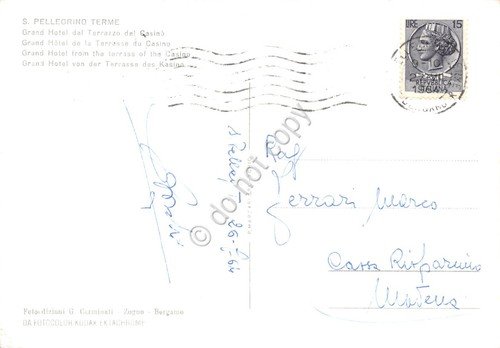 S. PELLEGRINO TERME
Grand Hôtel dal Terrazzo del Casinò
Grand Hôtel de la Terrasse du Casino
Grand Hôtel from the terrace of the Casino
Grand Hôtel von der Terrasse des Kasino
LIRE 15
1964
do not copy
26-7-64
Rag
Ferrari Marco
Cassa Risparmio
Modena
Fotoedizioni G. Carminati - Zogno - Bergamo
DA FOTOCOLOR KODAK EKTACHROME